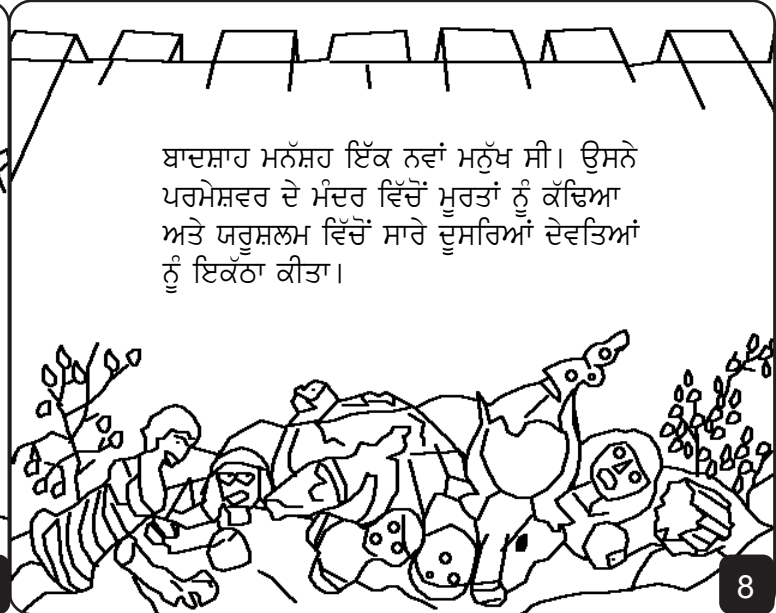 ਬਾਦਸ਼ਾਹ ਮਨੱਸ਼ਹ ਇੱਕ ਨਵਾਂ ਮਨੁੱਖ ਸੀ। ਉਸਨੇ
ਪਰਮੇਸ਼ਵਰ ਦੇ ਮੰਦਰ ਵਿੱਚੋਂ ਮੂਰਤਾਂ ਨੂੰ ਕੱਢਿਆ
ਅਤੇ ਯਰੂਸ਼ਲਮ ਵਿੱਚੋਂ ਸਾਰੇ ਦੂਸਰਿਆਂ ਦੇਵਤਿਆਂ
ਨੂੰ ਇਕੱਠਾ ਕੀਤਾ।
8